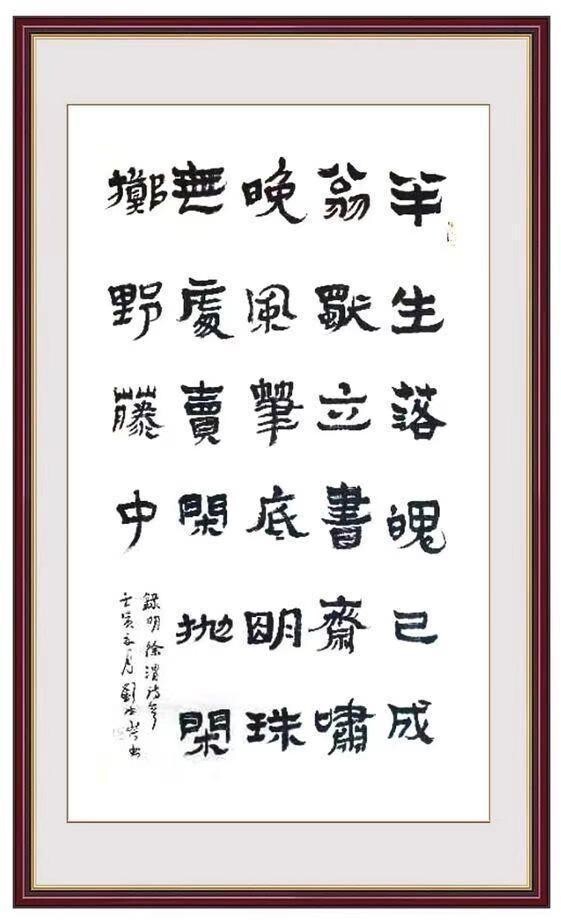 半生落魄已成
翁獨立書齋嘯
晚風筆底明珠
無處賣閑拋閑
擲野藤中
錄明徐渭詩
壬寅五月劉書